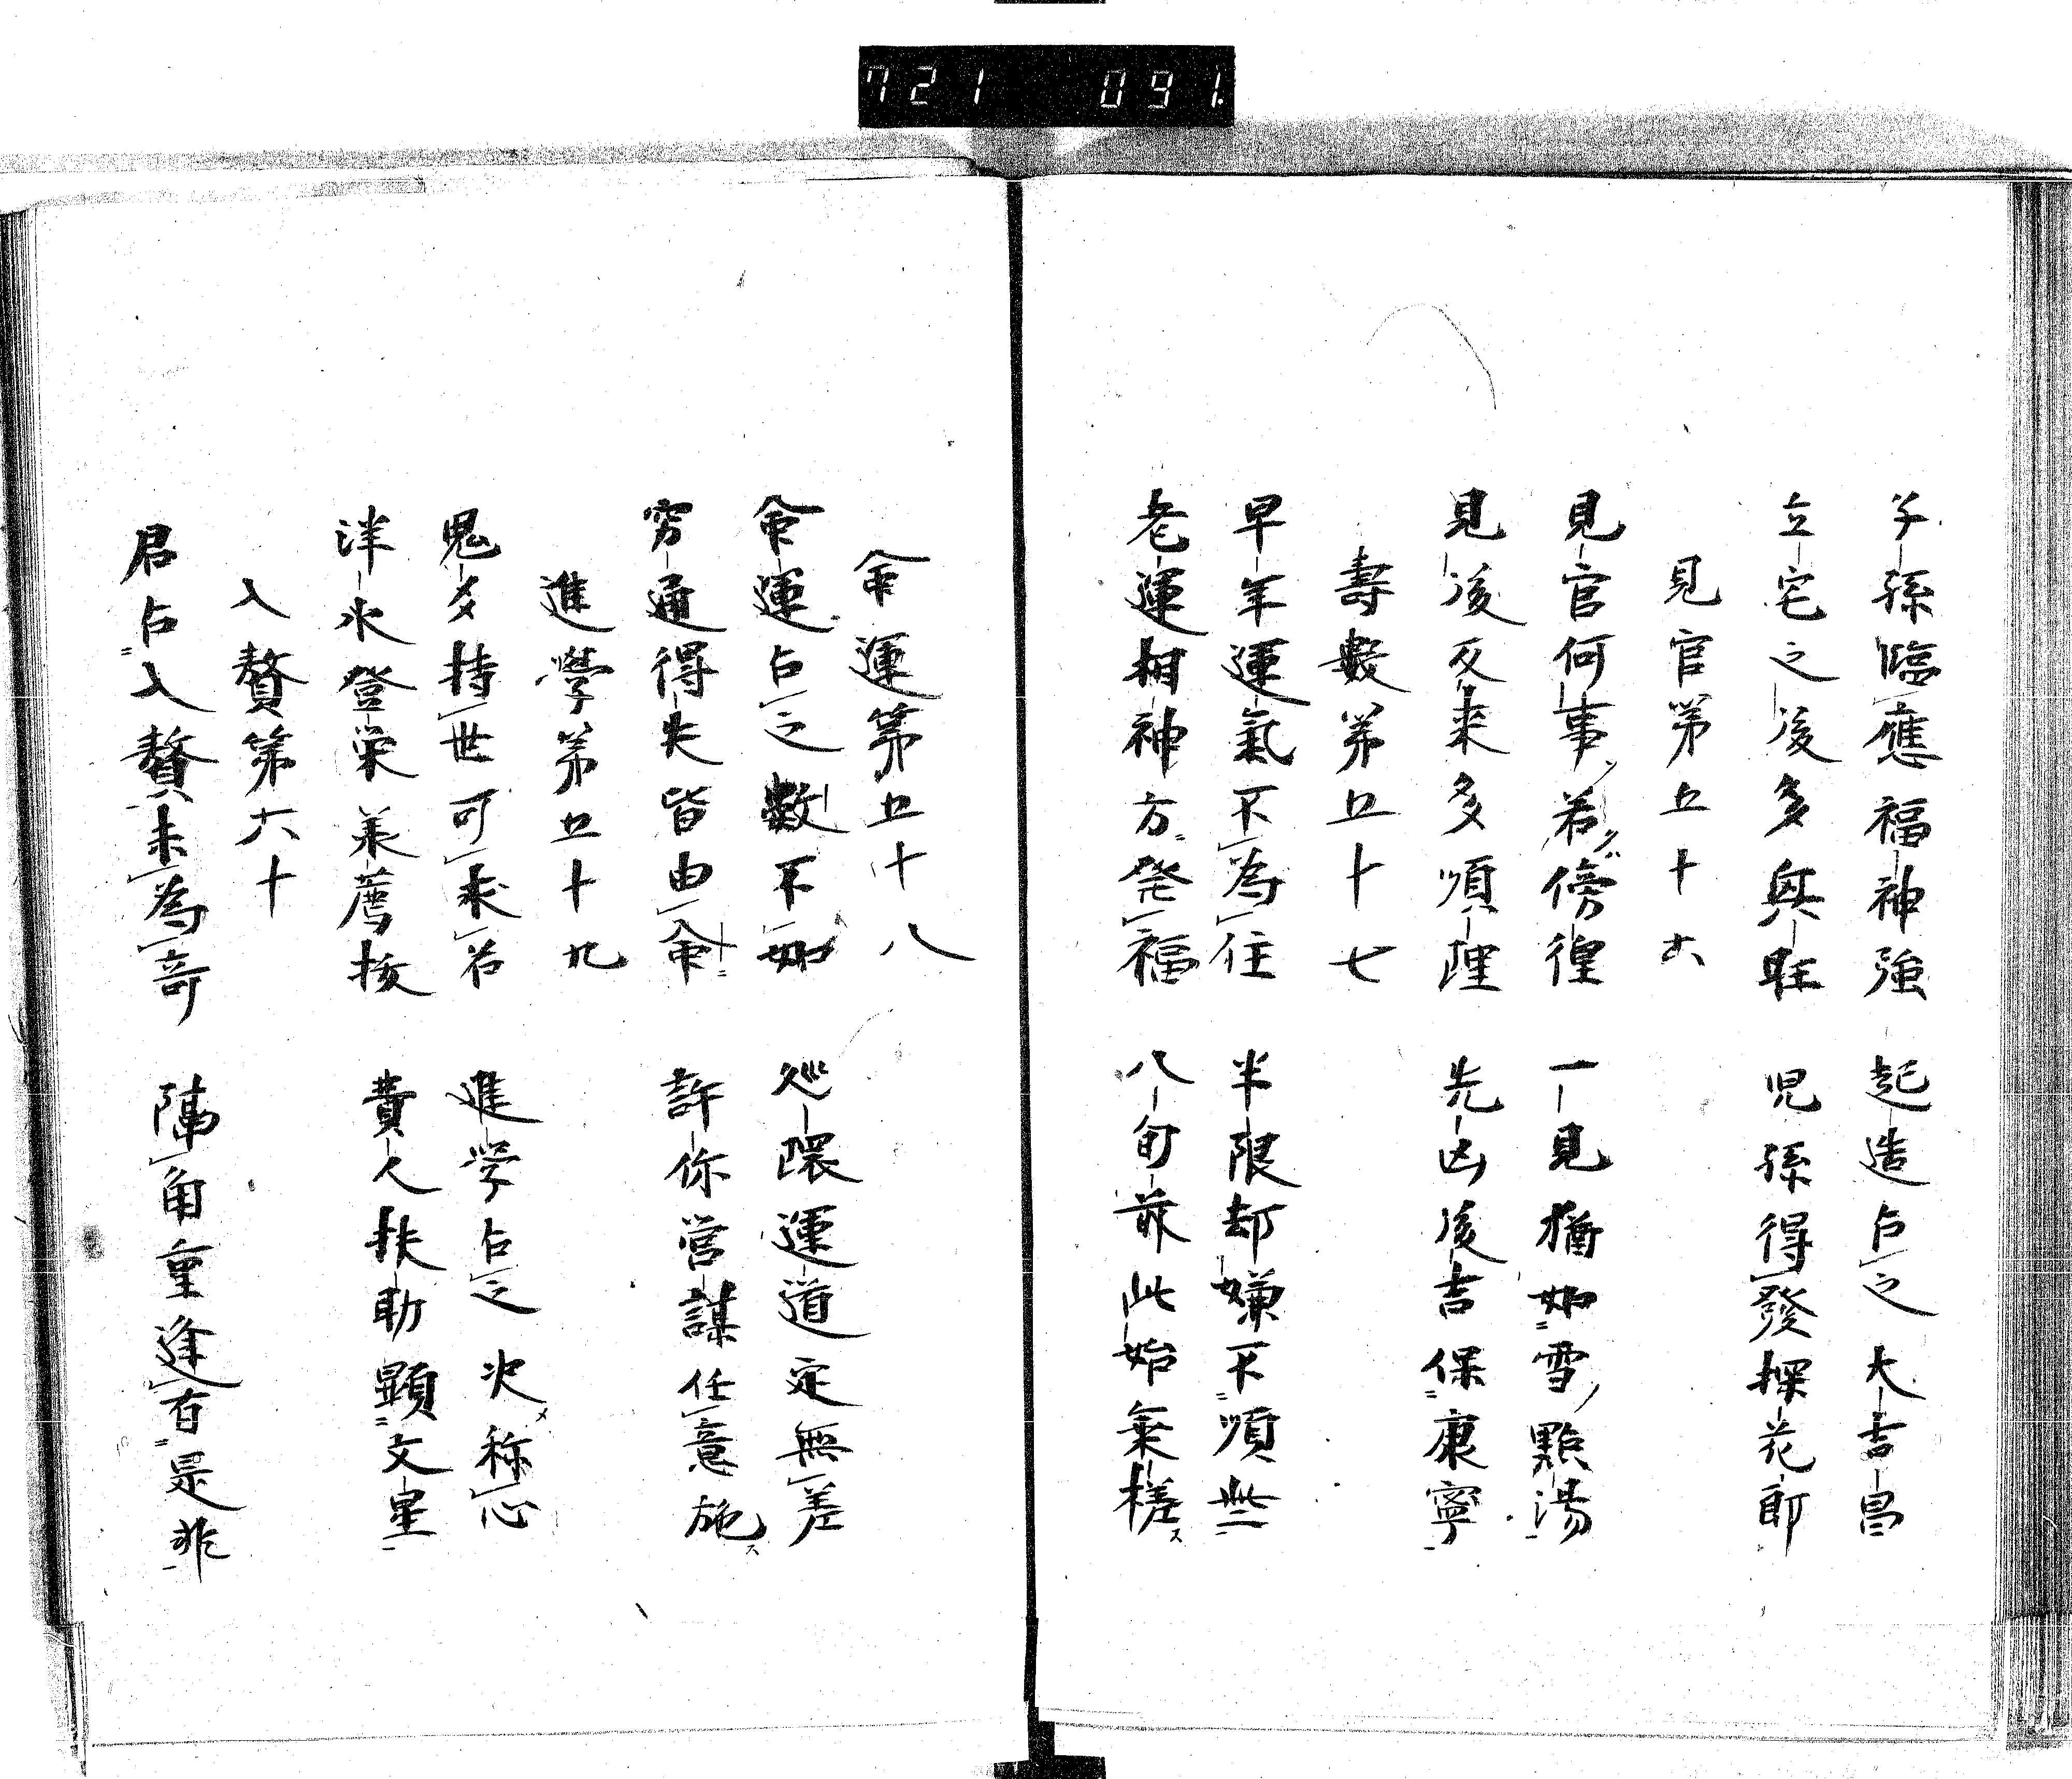 721 091.
子孫臨應福神強 起造占之大吉昌
立宅之後多興旺 児孫得發探花郎
見官第五十六
見官何事若傍徨 一見猶如雪點湯
見後反来多順理 先凶後吉保康寧
壽數第五十七
早年運氣不為佳 半限却嫌不順些
老運相神方発福 八旬前此始乗槎
命運第五十八
命運占之數不如 巡環運道定無差
窮通得失皆由命 許你営謀任意施
進學第五十九
鬼多持世可求名 進学占之必称心
泮水登栄兼薦拔 貴人扶助顕文星
入贅第六十
君占入贅未為奇 隔角重逢有是非